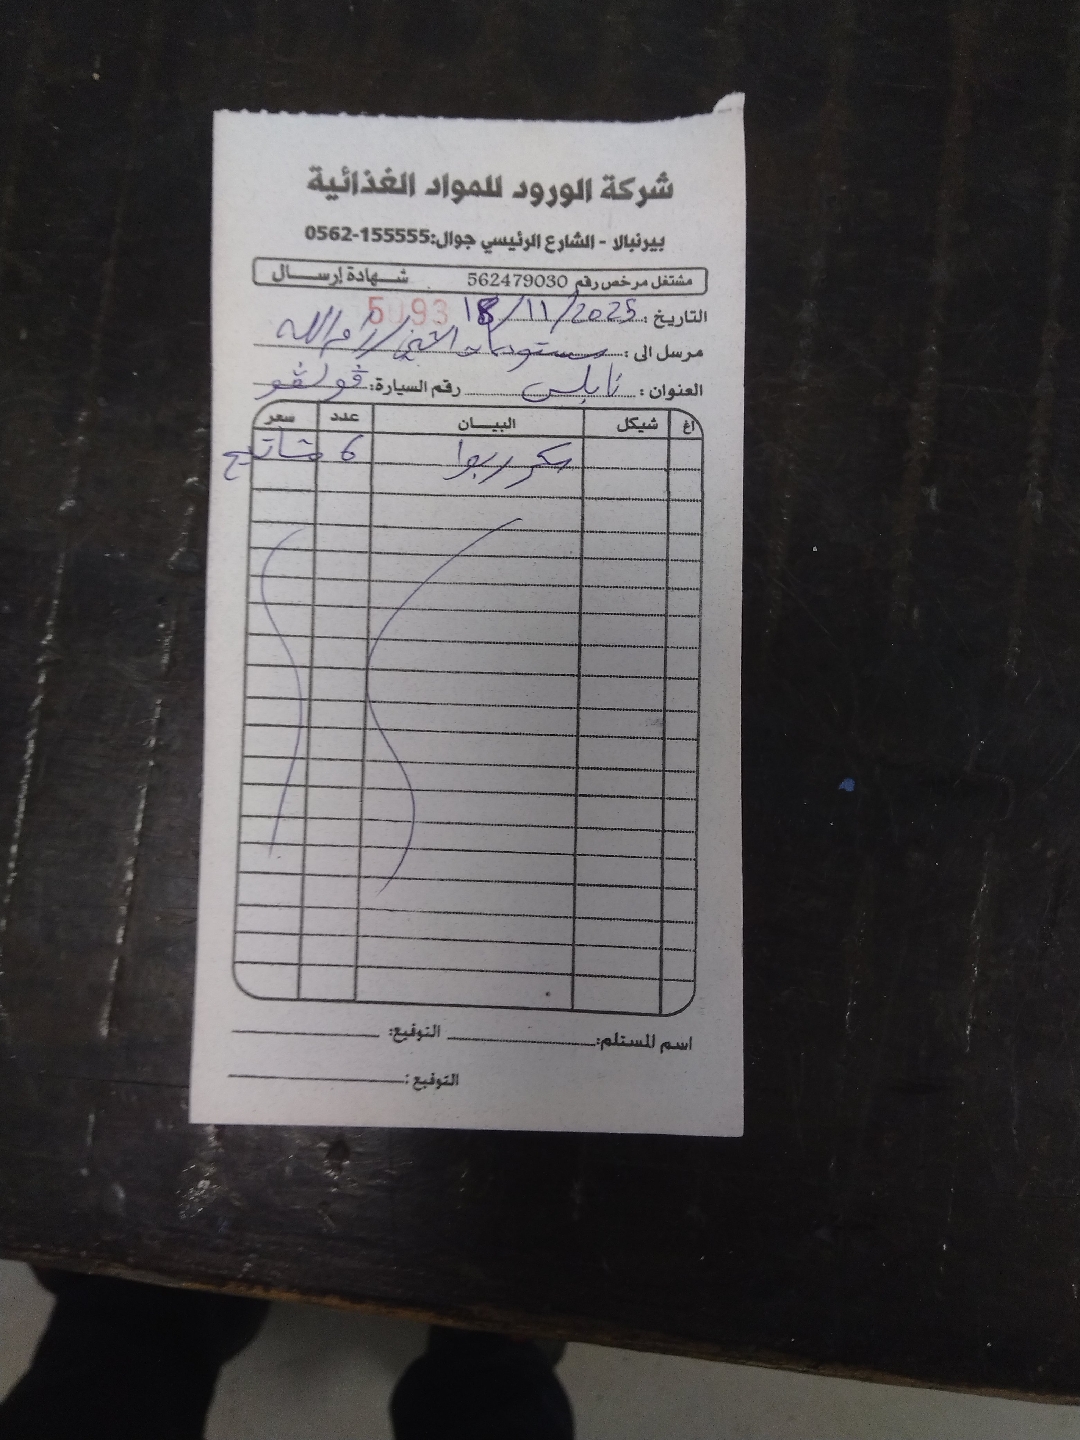 شركة الورود للمواد الغذائية
بيرنبالا - الشارع الرئيسي جوال:155555-0562
مشتغل مرخص رقم 562479030 شهادة إرسال
التاريخ : 18/11/2025 5093
مرسل الى : مستودعات الشيخ / رام الله
العنوان : نابلس رقم السيارة: ڤولڤو
أغ شيكل البيــان عدد سعر
سكر ربوا 6 مشاتيح
اسم المستلم: التوقيع:
التوقيع :